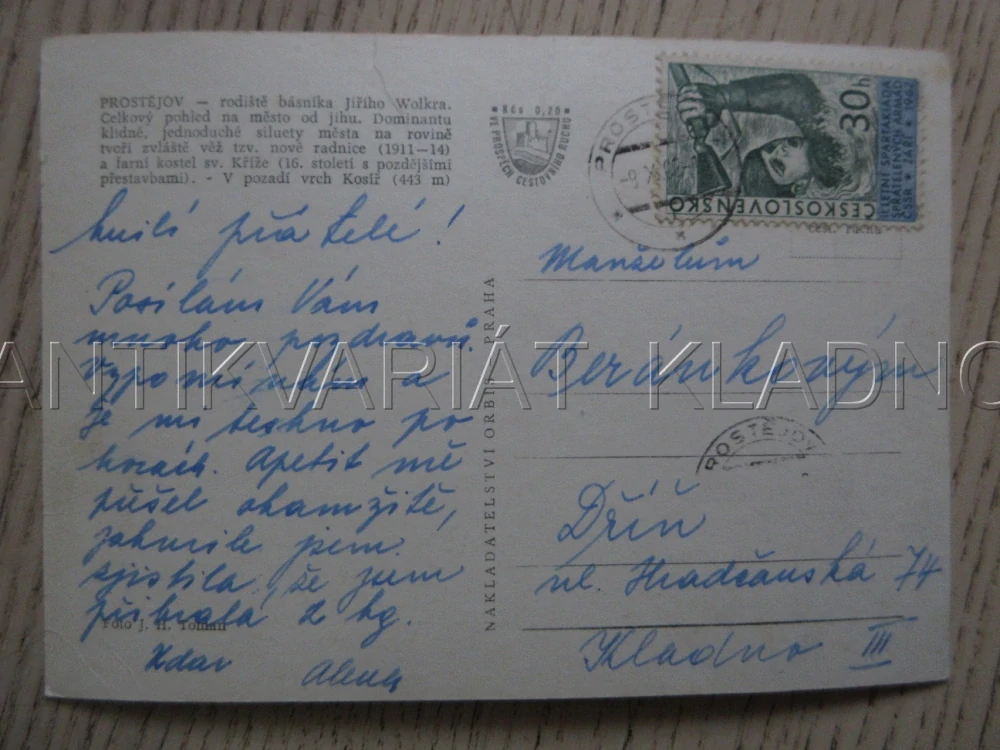 PROSTĚJOV — rodiště básníka Jiřího Wolkra.
Celkový pohled na město od jihu. Dominantu
klidné, jednoduché siluety města na rovině
tvoří zvláště věž tzv. nové radnice (1911—14)
a farní kostel sv. Kříže (16. století s pozdějšími
přestavbami). - V pozadí vrch Kosíř (443 m)
Kčs 0,20
VE PROSPĚCH CESTOVNÍHO RUCHU
30h
ČESKOSLOVENSKO
PROSTĚJOV
milí přátelé!
Posílám Vám
mnoho pozdravů.
Vzpomínám a
je mi teskno po
horách. Apetit mě
přešel okamžitě,
jakmile jsem
zjistila, že jsem
přibrala 2 kg.
Zdar Alena
Foto J. H. Toman
NAKLADATELSTVÍ ORBIS PRAHA
Manželům
Beránkovým
Dříň
ul. Hradčanská 74
Kladno III
ANTIKVARIÁT KLADNO